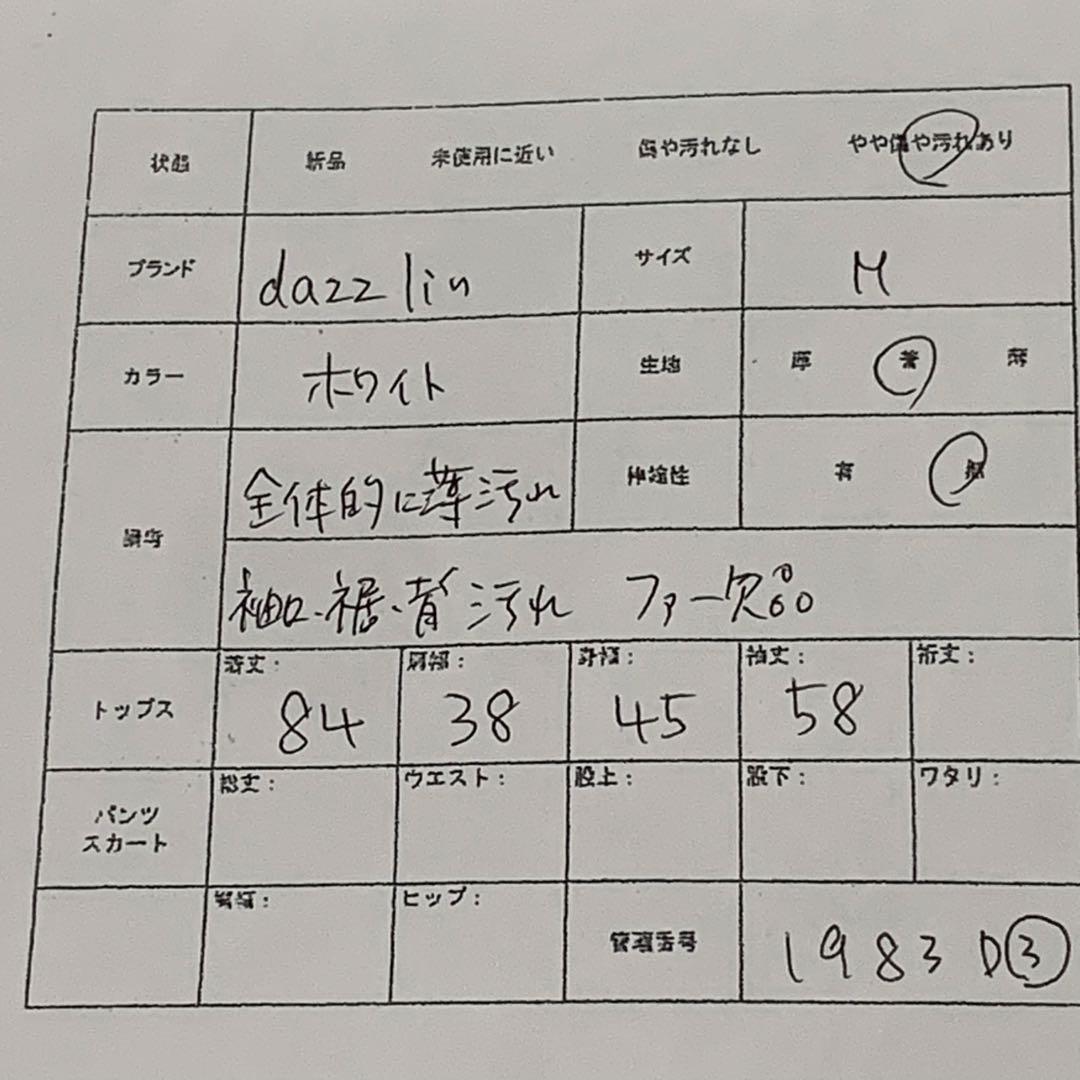 状態 新品 未使用に近い 傷や汚れなし やや傷や汚れあり
ブランド dazzlin サイズ M
カラー ホワイト 生地 厚 普 薄
全体的に薄汚れ 伸縮性 有 無
備考
袖口・裾・背く汚れ ファー欠品
着丈: 肩幅: 身幅: 袖丈: 裄丈:
トップス 84 38 45 58
総丈: ウエスト: 股上: 股下: ワタリ:
パンツ
スカート
裾幅: ヒップ:
管理番号 1983 D③